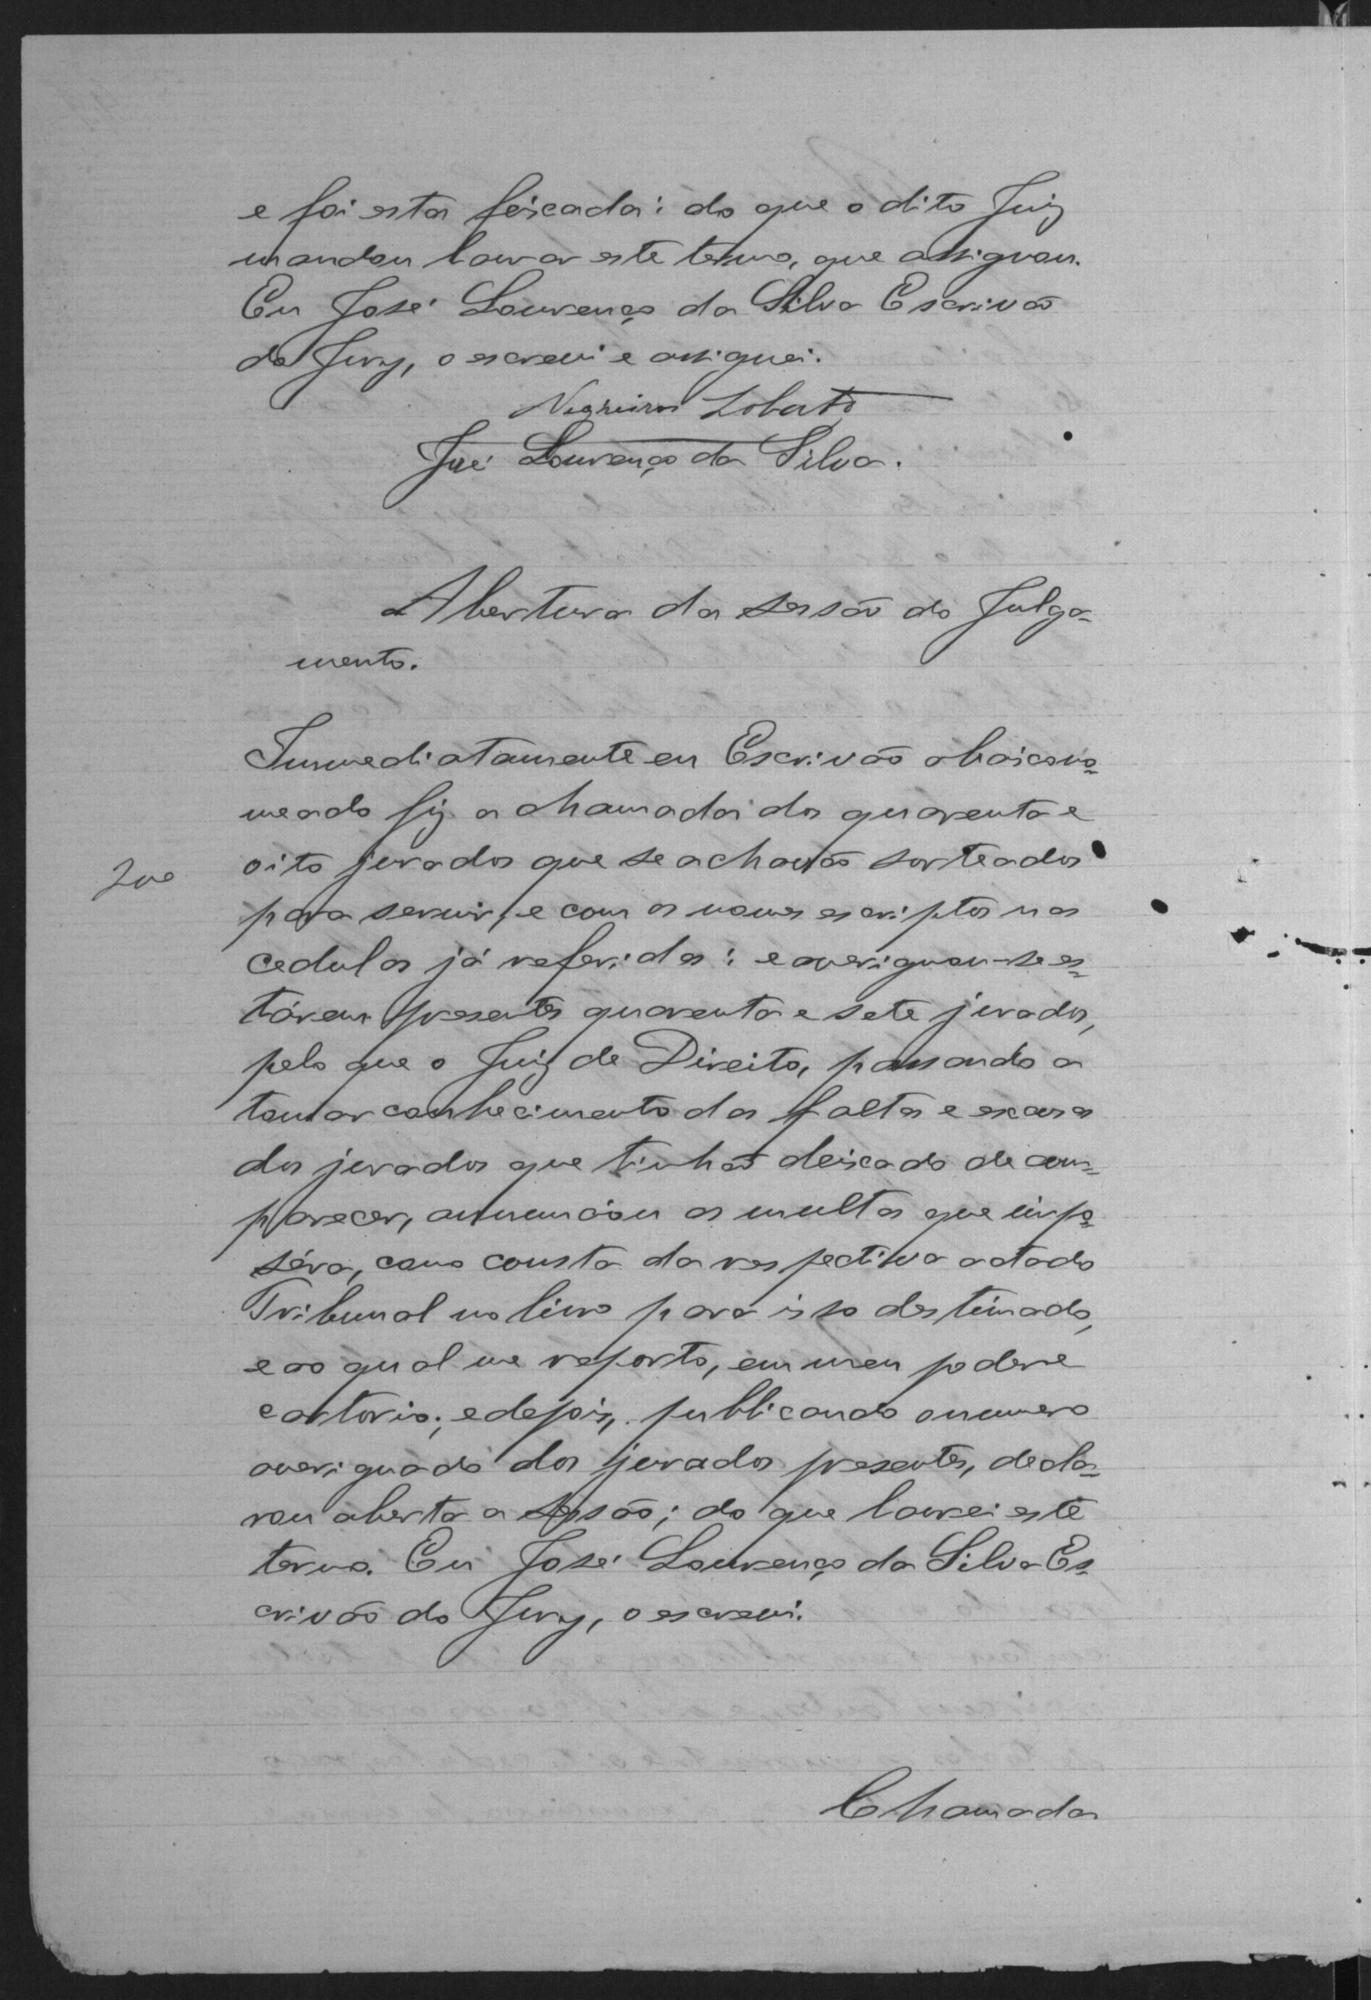 e foi esta feixada: do que o dito Juiz
mandou lavrar este termo, que assignou.
Eu José Lourenço da Silva Escrivão
do Jury, o escrevi e assignei.
Negreiros Lobato
José Lourenço da Silva.
Abertura da sessão do Julga-
mento.
Immediatamente eu Escrivão abaixo no-
meado fiz a chamada dos quarenta e
oito jurados que se achavão sorteados
para servir, e com os nomes escriptos nas
cedulas já referidas: e averiguou-se es-
tárem presentes quarenta e sete jurados,
pelo que o Juiz de Direito, passando a
tomar conhecimento das faltas e escusas
dos jurados que tinhão deixado de com-
parecer, annunciou as multas que impo-
séra, como consta da respectiva acta do
Tribunal no livro para isso destinado,
e ao qual me reporto, em meu poder e
cartorio; e depois, publicando o numero
averiguado dos jurados presentes, decla-
rou aberta a sessão; do que lavrei este
termo. Eu José Lourenço da Silva Es-
crivão do Jury, o escrevi.
Chamada